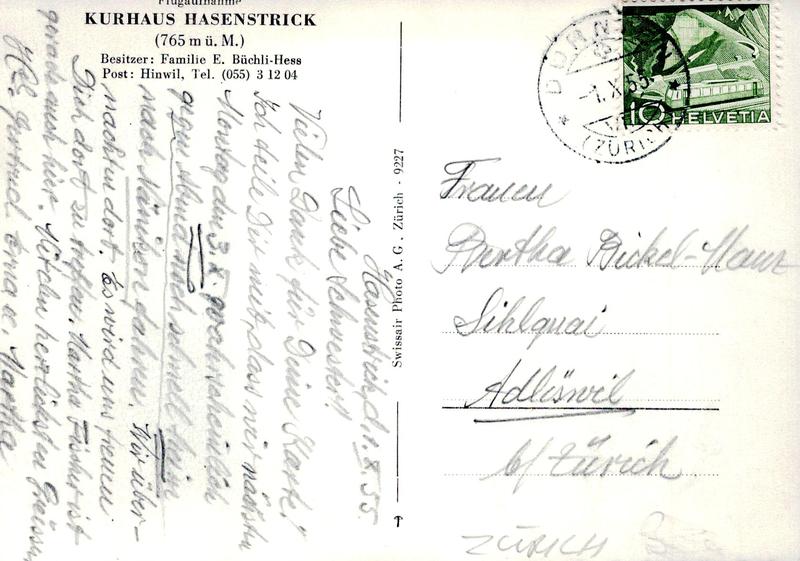 Flugaufnahme
KURHAUS HASENSTRICK
(765 m ü. M.)
Besitzer: Familie E. Büchli-Hess
Post: Hinwil, Tel. (055) 3 12 04
Hasenstrick, d. 1. X. 55.
Liebe Schwester!
Vielen Dank für Deine Karte!
Ich teile Dir mit, dass wir nächsten
Montag den 3. X. wahrscheinlich
gegen Abend noch schnell heim
nach Nänikon dahin. Wir über-
nachten dort. Es wird uns freuen
Dich dort zu treffen. Martha Fischer ist
gerade auch hier. Mit den herzlichsten Grüssen
Gertrud Erna u. Martha
Swissair Photo A. G., Zürich - 9227
DÜRNTEN
-1. X. 55
(ZÜRICH)
10 HELVETIA
Frauen
Bertha Bickel-Manz
Sihlquai
Adliswil
b/ Zürich
ZÜRICH